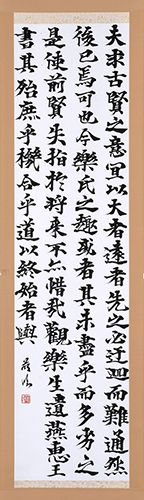 夫求古賢之意宜以大者遠者先之必迂迴而難通然
後已焉可也今樂氏之趣或者其未盡乎而多劣之
是使前賢失指於將來不亦惜哉觀樂生遺燕惠王
書其殆庶乎機合乎道以終始者與